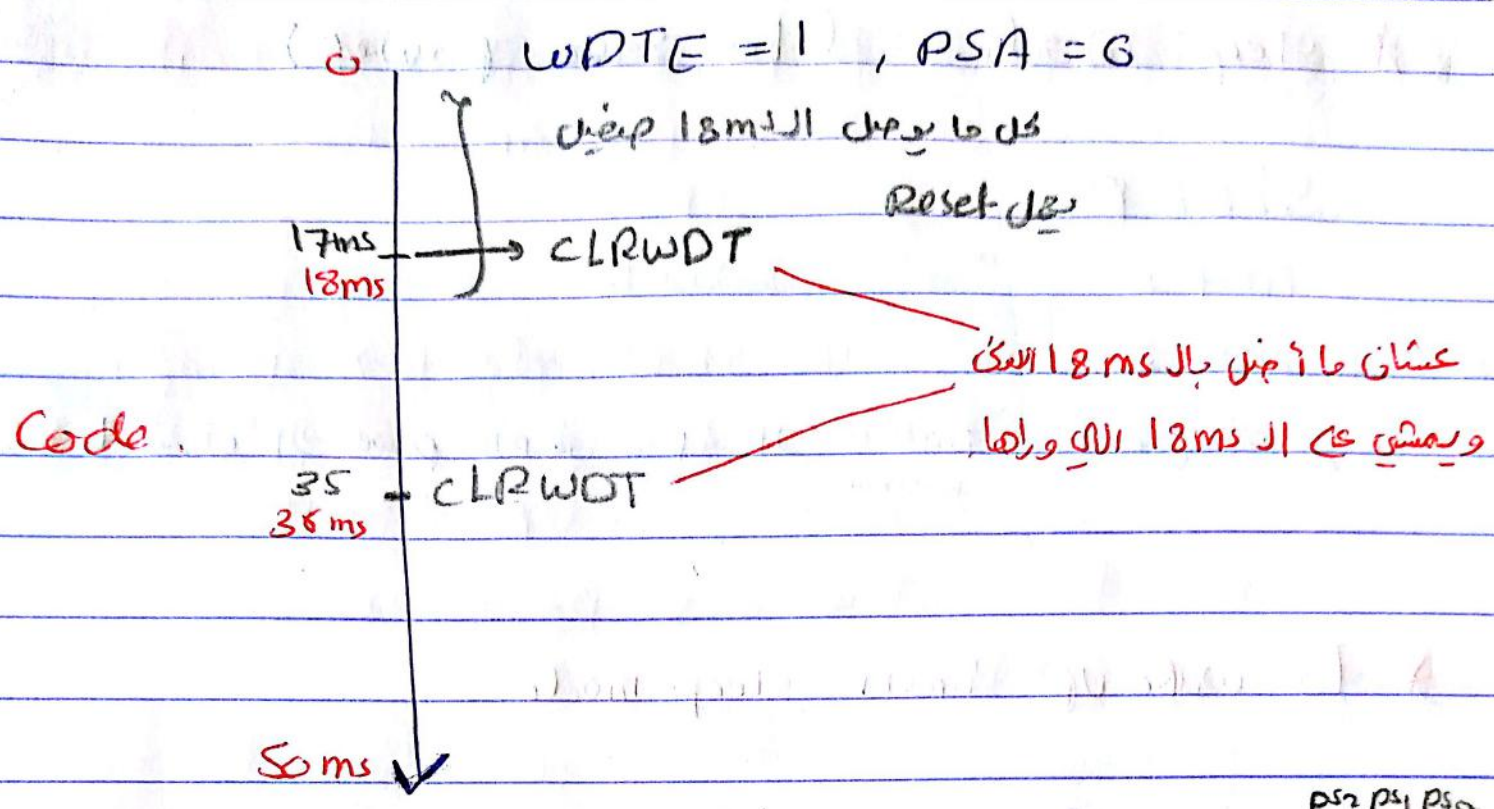 0
WDTE = 1 , PSA = 0
كل ما يوصل الـ 18m
Reset يعمل
17ms CLRWDT
18ms
عشان ما أصل بالـ 18 ms
ويمشي على الـ 18ms اللي وراها
Code.
35 CLRWDT
36 ms
50 ms
PS2 PS1 PS0